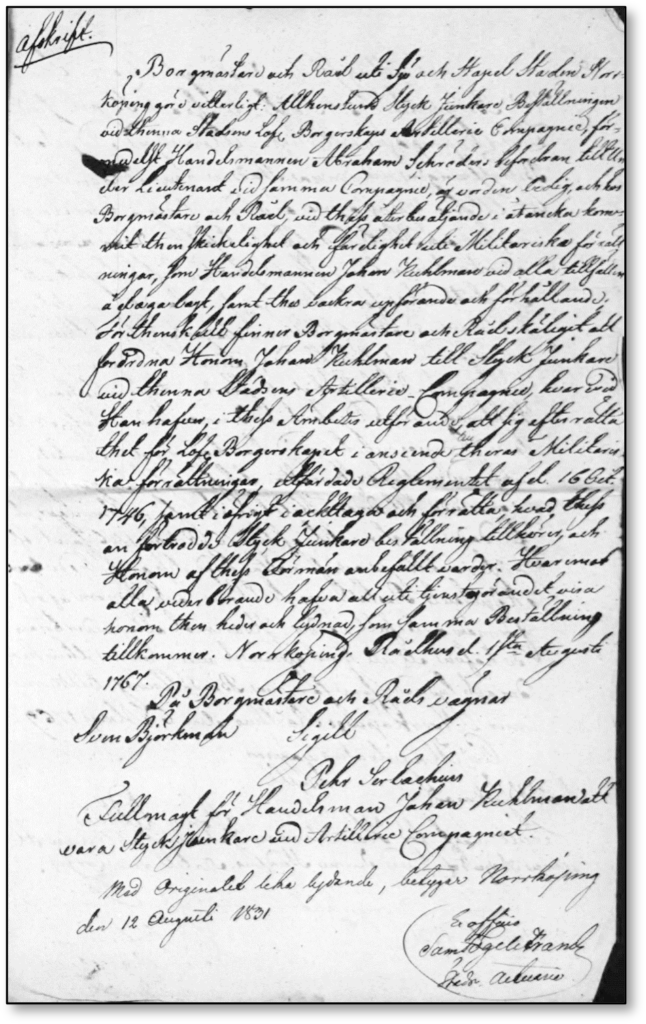 Afskrift.
Borgmästare och Råd uti Siö och Stapel Staden Norr-
köping göre vitterligt: Allthenstund Styck Junkare Beställningen
vid thenna Stadsens Lofl. Borgerskaps Artillerie Compagnie, för-
medelst Handelsmannen Abraham Schröders befordran till Un-
der Lieutenant vid samma Compagnie, är worden ledig, och hos
Borgmästare och Råd, vid thess återbesättjande i åtancka kom-
mit then skickelighet och färdighet uti Militariska förrätt-
ningar, som Handelsmannen Johan Kuhlman vid alla tillfällen
å daga lagt, samt thes wackra upförande och förhållande.
För thenskull finner Borgmästare och Råd skäligit att
förordna Honom Johan Kuhlman till Styck Junkare
vid thenna Stadsens Artillerie-Compagnie, hvarvid
Han hafver, i thess Ambetes utförande, att sig efterrätta
thet för Lofl. Borgerskapet i anseende theras Militaris-
ka förrättningar, utfärdade Reglementet af d. 16 Oct.
1746, samt i öfrigt i acktaga och förrätta hvad thess
an förtrodde Styck Junkare beställning tillhörer, och
Honom af thess Förmän anbefallt warder. Hvaremot
alla vederbörande hafva att uti tjenstgörandet visa
honom then heder och lydnad, som samma Beställning
tillkommer. Norrköpings Rådhus d. 1sta Augusti
1767.
På Borgmästare och Råds vägnar
Sven Björkman Sigill
Pehr Serlachius
Fullmagt för Handelsman Johan Kuhlman att
vara Styck Junkare vid Artillerie Compagniet.
Med Originalet lika lydande, betygar Norrköping
den 12 Augusti 1831
Ex officio
Sam
Actuarie